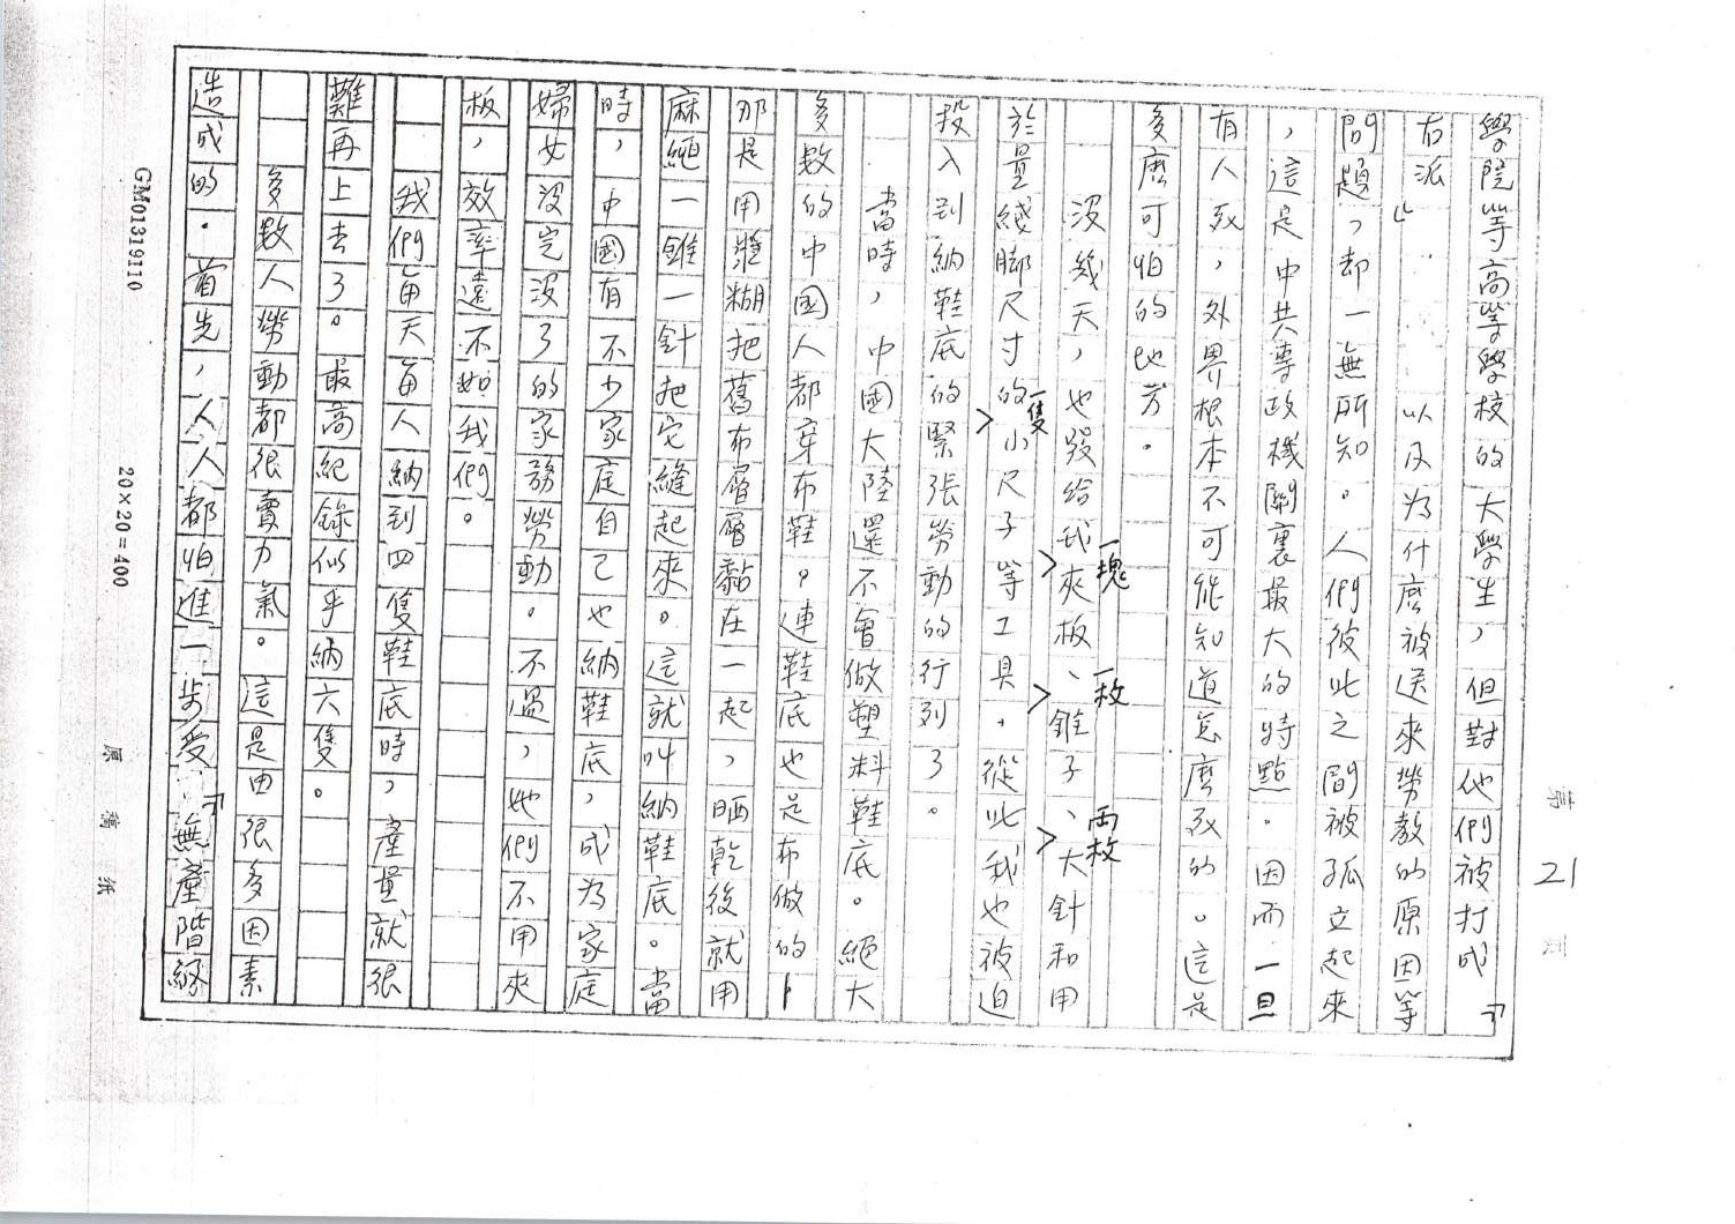 第 21 頁
學院等高等學校的大學生，但對他們被打成「
右派」以及為什麽被送來勞教的原因等
問題，却一無所知。人們彼此之間被孤立起來
，這是中共專政機關裏最大的特點。因而一旦
有人死，外界根本不可能知道怎麽死的。這是
多麽可怕的地方。
沒幾天，也發給我一塊夾板、一枚錐子、兩枚大針和用
於量綫脚尺寸的一隻小尺子等工具。從此我也被迫
投入到納鞋底的緊張勞動的行列了。
當時，中國大陸還不會做塑料鞋底。絕大
多數的中國人都穿布鞋。連鞋底也是布做的—
那是用漿糊把舊布層層黏在一起，晒乾後就用
麻繩一錐一針把它縫起來。這就叫納鞋底。當
時，中國有不少家庭自己也納鞋底，成为家庭
婦女沒完沒了的家務勞動。不過，她們不用夾
板，效率遠不如我們。
我們每天每人納到四隻鞋底時，產量就很
難再上去了。最高紀錄似乎納六隻。
多數人勞動都很賣力氣。這是由很多因素
造成的．首先，人人都怕進一步受「無產階級
GM01319110
20×20=400
原稿紙